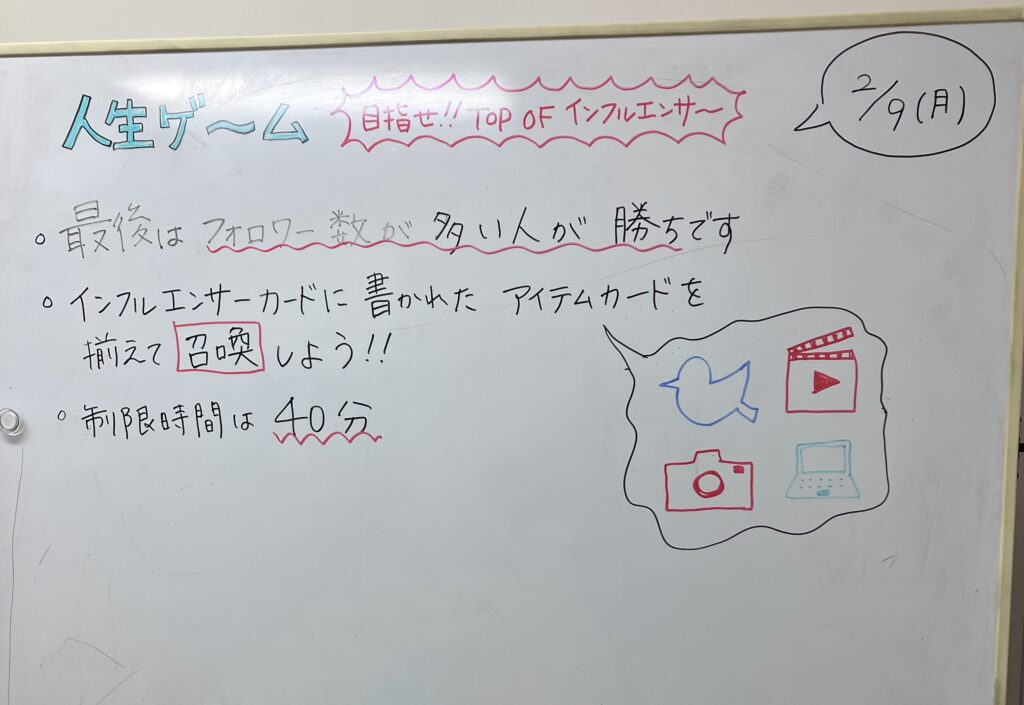 人生ゲーム
目指せ!! TOP OF インフルエンサー
2/9(月)
。最後は フォロワー数が 多い人が 勝ちです
。インフルエンサーカードに 書かれた アイテムカードを
揃えて 召喚 しよう!!
。制限時間は 40分